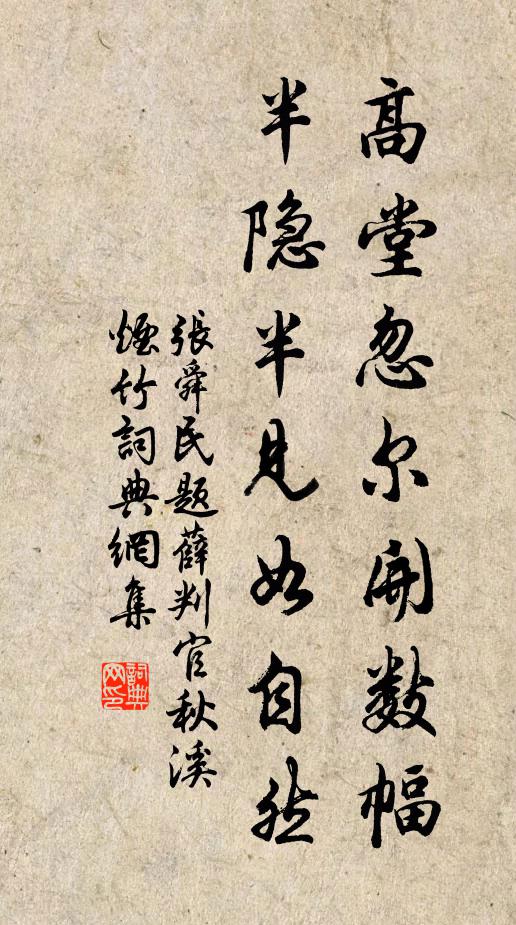 高堂忽尔開數幅
半隐半見如自然
張舜民题薛判官秋溪
煙竹詞典網集
詞典网印